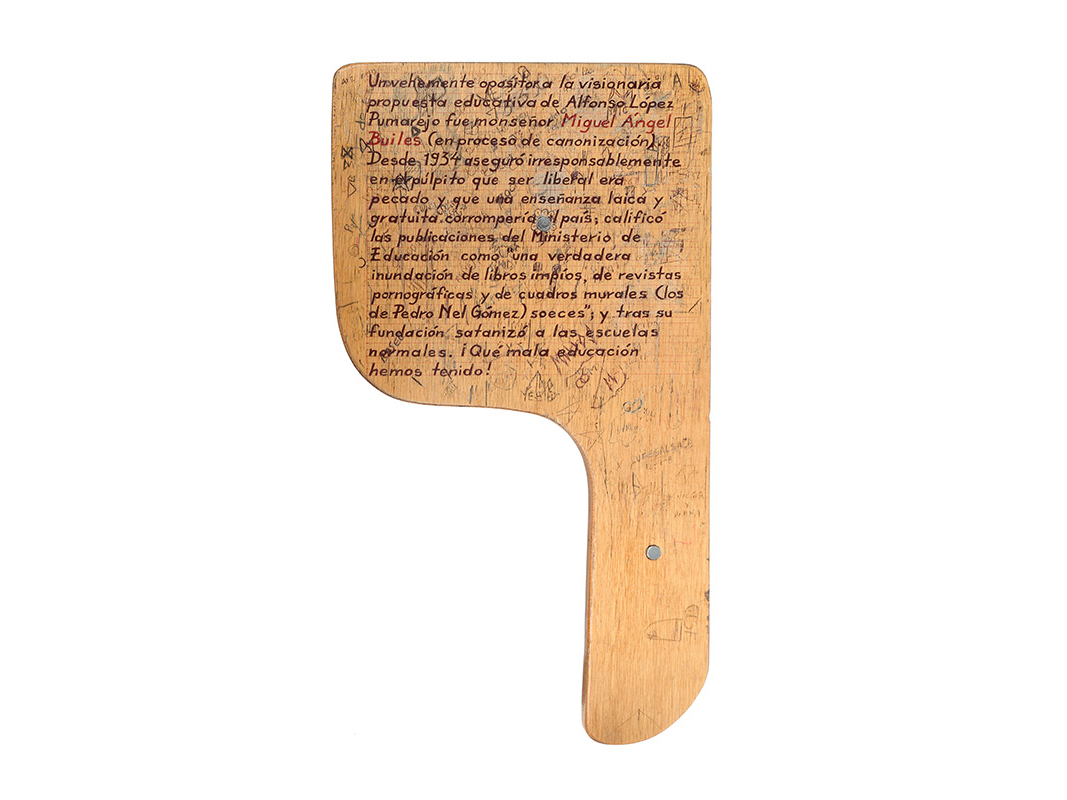 Un vehemente opositor a la visionaria
propuesta educativa de Alfonso López
Pumarejo fue monseñor Miguel Ángel
Builes (en proceso de canonización).
Desde 1934 aseguró irresponsablemente
en el púlpito que ser liberal era
pecado y que una enseñanza laica y
gratuita corrompería al país; calificó
las publicaciones del Ministerio de
Educación como "una verdadera
inundación de libros impíos, de revistas
pornográficas y de cuadros murales (los
de Pedro Nel Gómez) soeces"; y tras su
fundación satanizó a las escuelas
normales. ¡Qué mala educación
hemos tenido!